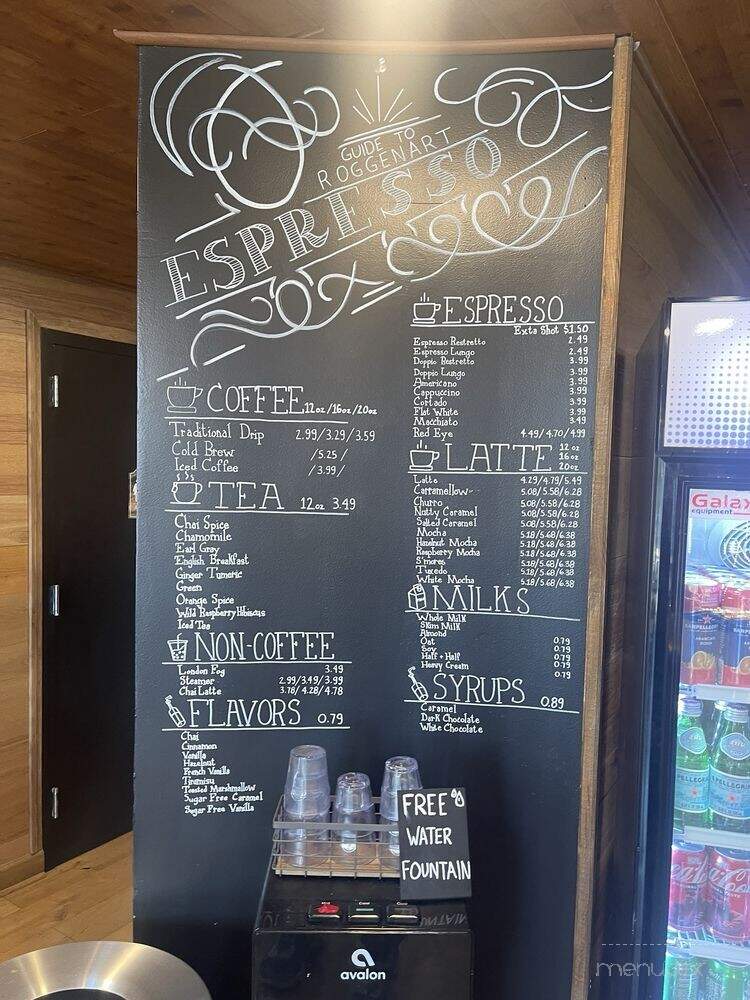 GUIDE TO
ROGGENART
ESPRESSO
COFFEE 12oz/16oz/20oz
Traditional Drip 2.99/3.29/3.59
Cold Brew /5.25/
Iced Coffee /3.99/
TEA 12oz 3.49
Chai Spice
Chamomile
Earl Gray
English Breakfast
Ginger Tumeric
Green
Orange Spice
Wild Raspberry Hibiscus
Iced Tea
NON-COFFEE
London Fog 3.49
Steamer 2.99/3.49/3.99
Chai Latte 3.78/4.28/4.78
FLAVORS 0.79
Chai
Cinnamon
Vanilla
Hazelnut
French Vanilla
Tiramisu
Toasted Marshmallow
Sugar Free Caramel
Sugar Free Vanilla
ESPRESSO
Exta Shot $1.50
Espresso Restretto 2.49
Espresso Lungo 2.49
Doppio Restretto 3.99
Doppio Lungo 3.99
Americano 3.99
Cappuccino 3.99
Cortado 3.99
Flat White 3.99
Macchiato 3.49
Red Eye 4.49/4.70/4.99
LATTE 12 oz
16 oz
20oz
Latte 4.29/4.79/5.49
Carramellow 5.08/5.58/6.28
Churro 5.08/5.58/6.28
Nutty Caramel 5.08/5.58/6.28
Salted Caramel 5.08/5.58/6.28
Mocha 5.18/5.68/6.38
Hazelnut Mocha 5.18/5.68/6.38
Raspberry Mocha 5.18/5.68/6.38
S'mores 5.18/5.68/6.38
Tuxedo 5.18/5.68/6.38
White Mocha 5.18/5.68/6.38
MILKS
Whole Milk
Skim Milk
Almond
Oat 0.79
Soy 0.79
Half + Half 0.79
Heavy Cream 0.79
SYRUPS 0.89
Caramel
Dark Chocolate
White Chocolate
FREE
WATER
FOUNTAIN
avalon
Galax
equipment